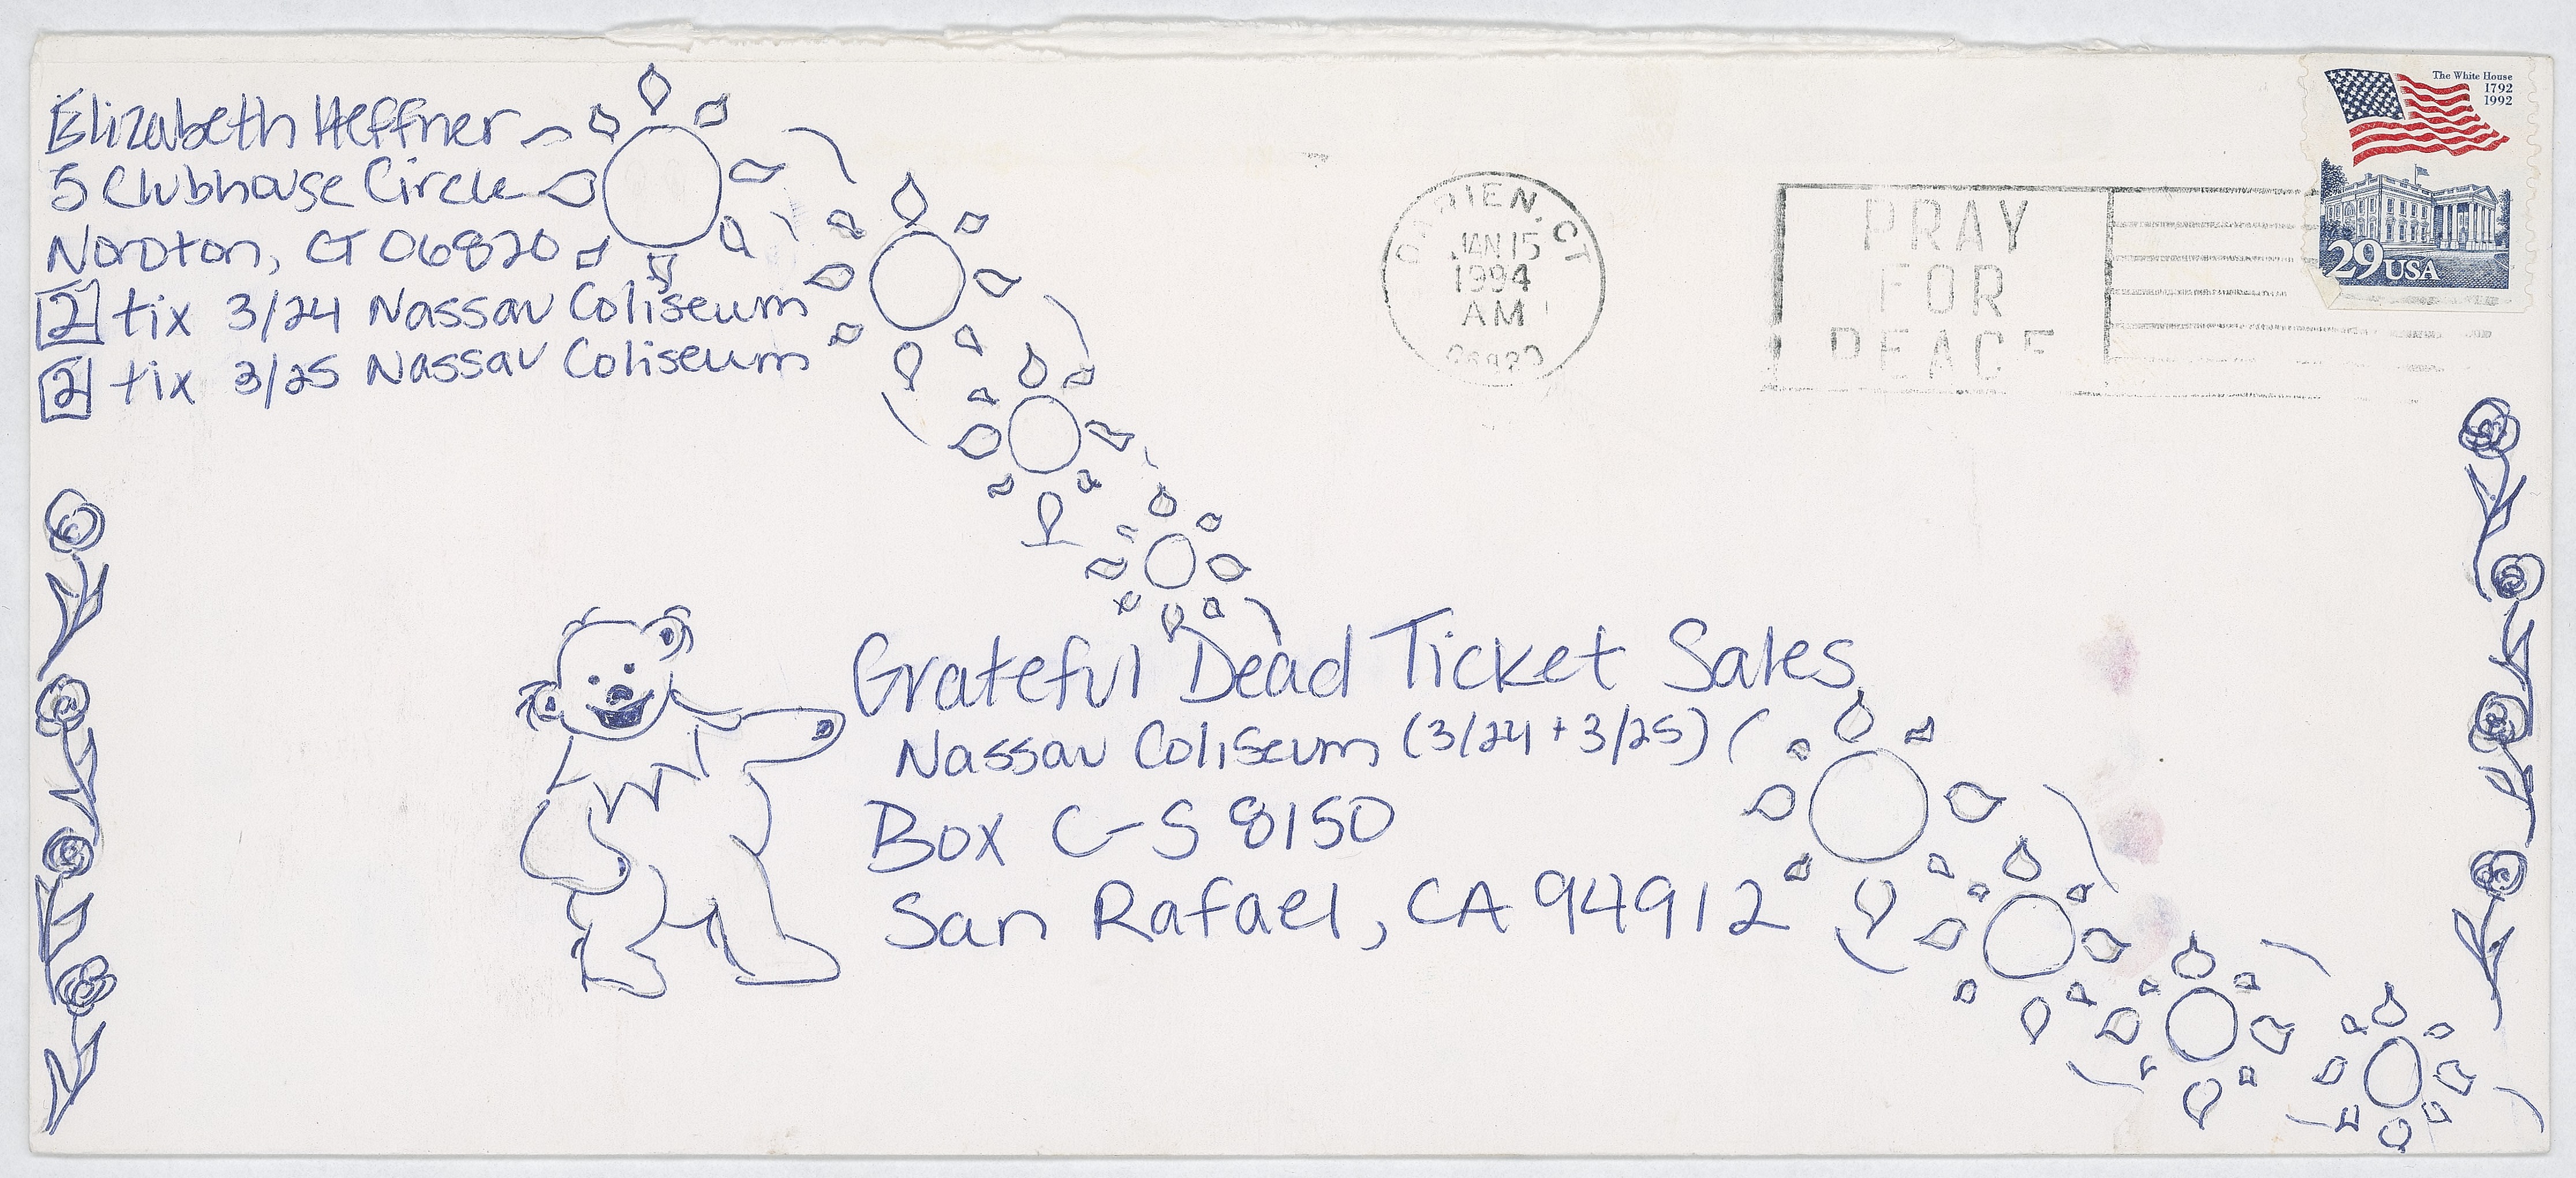 Elizabeth Heffner
5 Clubhouse Circle
Noroton, CT 06820
2 tix 3/24 Nassau Coliseum
2 tix 3/25 Nassau Coliseum
DARIEN, CT
JAN 15
1994
AM
06820
PRAY
FOR
PEACE
The White House
1792
1992
29 USA
Grateful Dead Ticket Sales
Nassau Coliseum (3/24 + 3/25)
Box C-S 8150
San Rafael, CA 94912